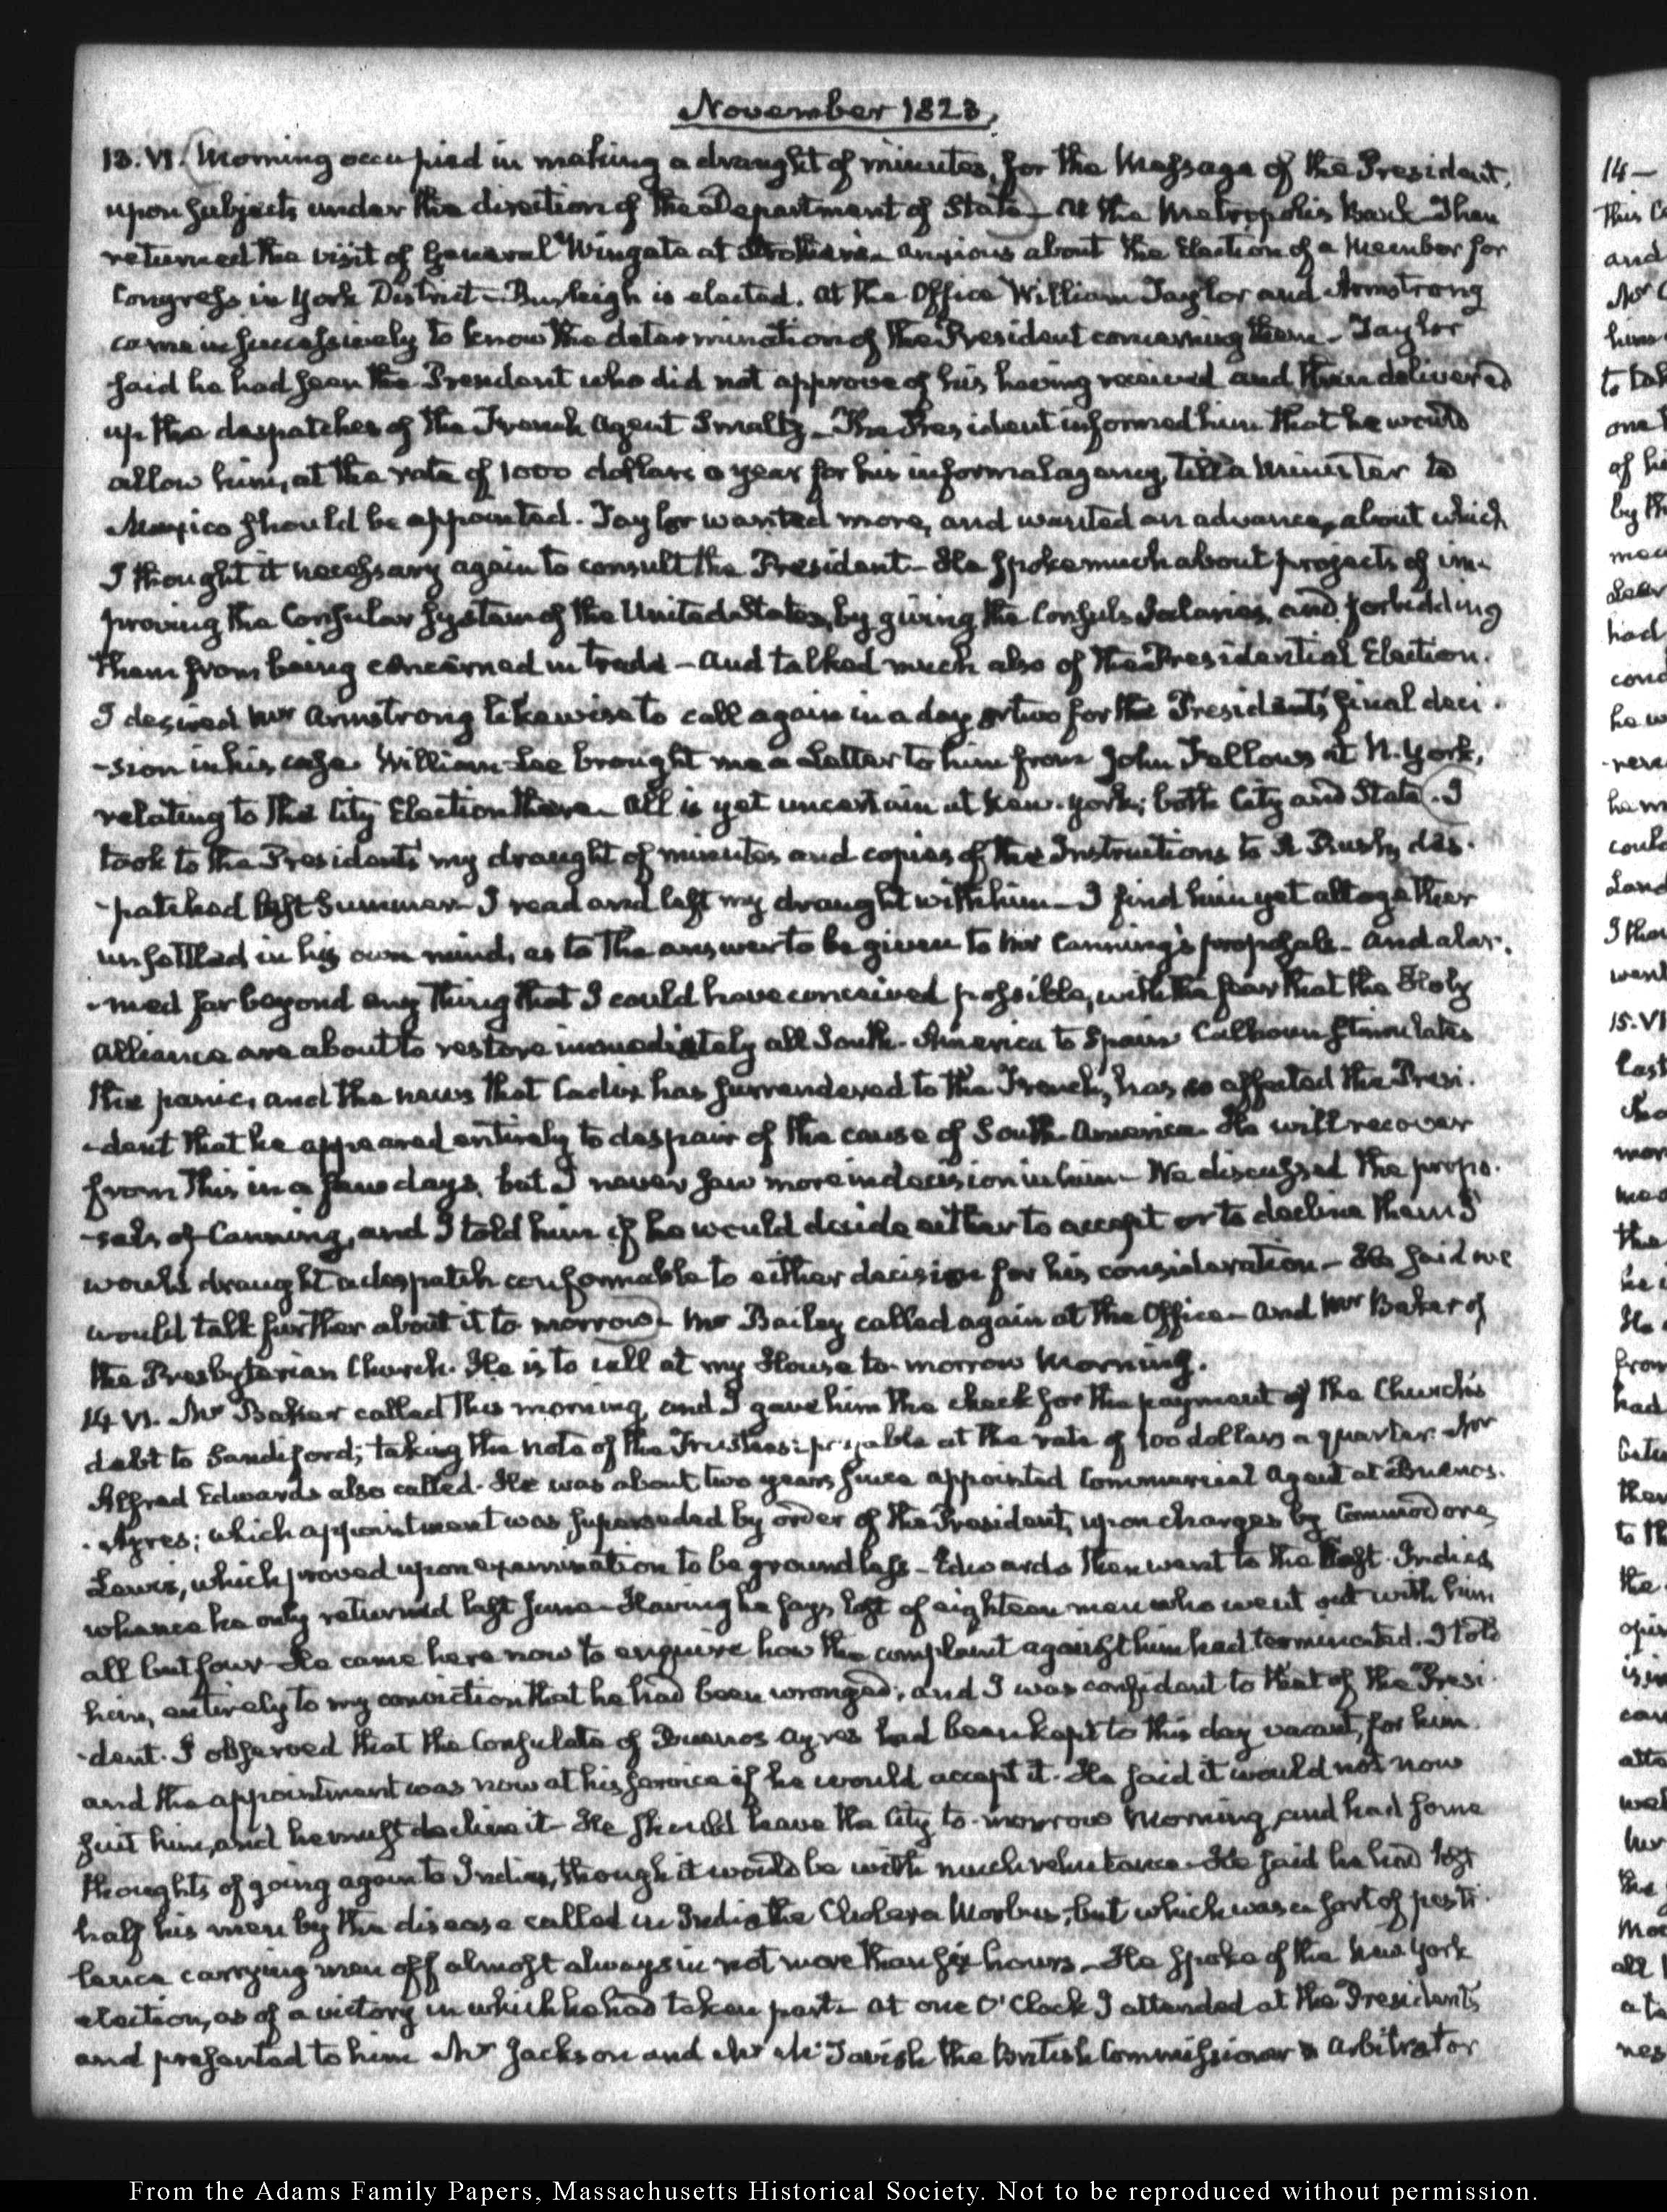 November 1823.
13. VI. Morning occupied in making a draught of minutes, for the Message of the President,
upon subjects under the direction of the Department of State — At the Metropolis Bank. Then
returned the visit of General Wingate at Strother's. anxious about the Election of a Member for
Congress in York District — Burleigh is elected. At the Office William Taylor and Armstrong
came in successively to know the determination of the President concerning them — Taylor
said he had seen the President who did not approve of his having received and then delivered
up the despatches of the French Agent Smaltz — The President informed him that he would
allow him, at the rate of 1000 dollars a year for his informal agency, till a Minister to
Mexico should be appointed. Taylor wanted more, and wanted an advance, about which
I thought it necessary again to consult the President — He spoke much about projects of im-
proving the Consular system of the United States, by giving the Consuls Salaries, and forbidding
them from being concerned in trade — And talked much also of the Presidential Election.
I desired Mr Armstrong likewise to call again in a day or two for the President's final deci-
-sion in his case. William Lee brought me a Letter to him from John Fellows at N. York,
relating to the City Election there — All is yet uncertain at New-York; both City and State. I
took to the President's my draught of minutes and copies of the Instructions to R Rush, des-
-patched last Summer — I read and left my draught with him — I find him yet altogether
unsettled in his own mind, as to the answer to be given to Mr Canning's proposals — And alar-
-med far beyond any thing that I could have conceived possible, with the fear that the Holy
Alliance are about to restore immediately all South-America to Spain. Calhoun stimulates
the panic, and the news that Cadiz has surrendered to the French, has so affected the Presi-
-dent that he appeared entirely to despair of the cause of South America. He will recover
from this in a few days, but I never saw more indecision in him — We discussed the propo-
-sals of Canning, and I told him if he would decide either to accept or to decline them I
would draught a despatch conformable to either decision for his consideration — He said we
would talk further about it to morrow — Mr Bailey called again at the Office — And Mr Baker of
the Presbyterian Church. He is to call at my House to-morrow Morning.
14 VI. Mr Baker called this morning, and I gave him the check for the payment of the Church's
debt to Sandiford; taking the note of the Trustees: payable at the rate of 100 dollars a quarter. Mr
Alfred Edwards also called. He was about two years since appointed Commercial Agent at Buenos-
-Ayres; which appointment was superseded by order of the President, upon charges by Commodore
Lewis, which proved upon examination to be groundless — Edwards then went to the East-Indies
whence he only returned last June — Having he says lost of eighteen men who went out with him
all but four — He came here now to enquire how the complaint against him had terminated. I told
him, entirely to my conviction that he had been wronged; and I was confident to that of the Presi-
-dent. I observed that the Consulate of Buenos Ayres had been kept to this day vacant, for him
and the appointment was now at his service if he would accept it. He said it would not now
suit him, and he must decline it — He should leave the City to-morrow Morning, and had some
thoughts of going again to India, though it would be with much reluctance. He said he had lost
half his men by the disease called in India the Cholera Morbus, but which was a sort of pesti-
lence carrying men off almost always in not more than six hours — He spoke of the New York
election, as of a victory in which he had taken part — At one O'Clock I attended at the President's
and presented to him Mr Jackson and Mr McTavish the British Commissioner & Arbitrator
14 —
and
15. VI
From the Adams Family Papers, Massachusetts Historical Society. Not to be reproduced without permission.